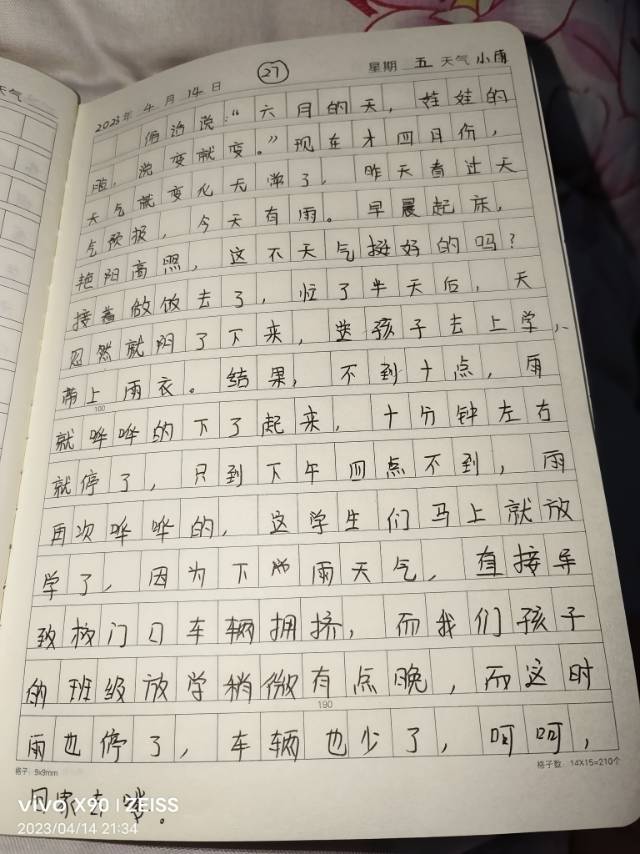 天气
2023年 4月 14日 27 星期 五 天气 小雨
俗话说:“六月的天，娃娃的
脸，说变就变。”现在才四月份，
天气就变化无常了，昨天看过天
气预报，今天有雨。早晨起床，
艳阳高照，这不天气挺好的吗？
接着做饭去了，忙了半天后，天
忽然就阴了下来，送孩子去上学，
带上雨衣。结果，不到十点，雨
100
就哗哗的下了起来，十分钟左右
就停了，只到下午四点不到，雨
再次哗哗的，这学生们马上就放
学了，因为下雨天气，直接导
致校门口车辆拥挤，而我们孩子
的班级放学稍微有点晚，而这时
190
雨也停了，车辆也少了，呵呵，
格子：9x9mm 格子数：14X15=210个
回家去
vivo X90 | ZEISS
2023/04/14 21:34